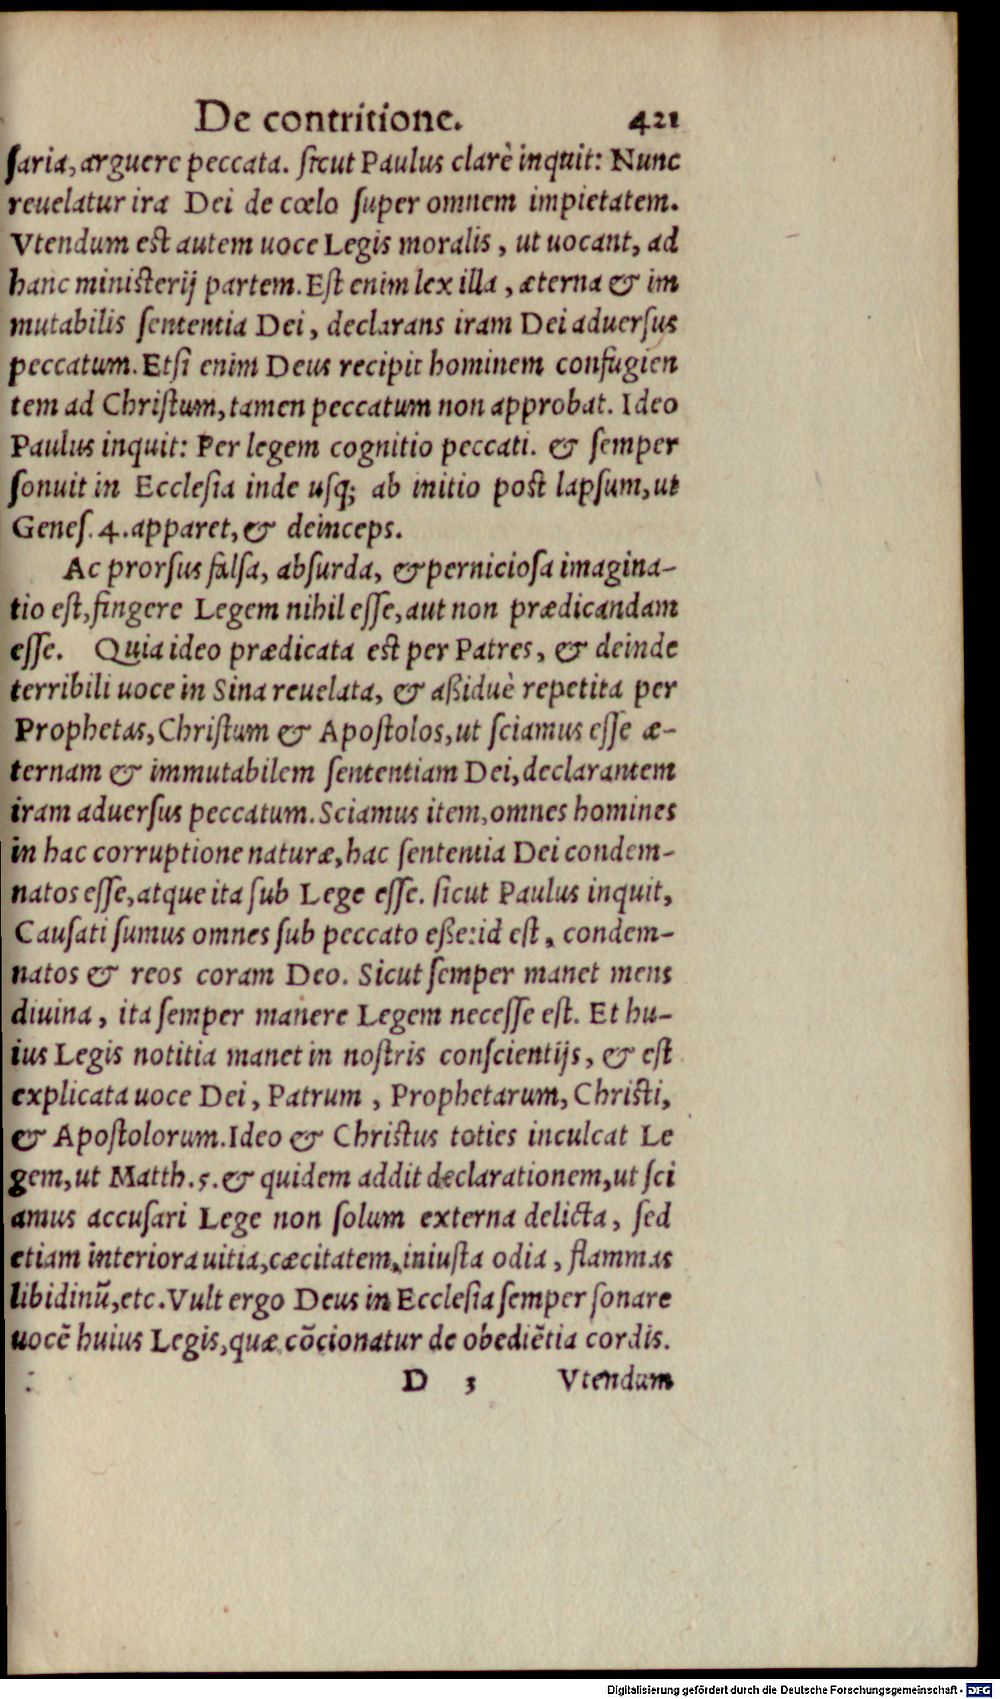 De contritione. 421
ſaria, arguere peccata. ſicut Paulus clarè inquit: Nunc
reuelatur ira Dei de cœlo ſuper omnem impietatem.
Vtendum est autem uoce Legis moralis, ut uocant, ad
hanc ministerij partem. Eſt enim lex illa, æterna & im
mutabilis ſententia Dei, declarans iram Dei aduerſus
peccatum. Etſi enim Deus recipit hominem confugien
tem ad Chriſtum, tamen peccatum non approbat. Ideo
Paulus inquit: Per legem cognitio peccati. & ſemper
ſonuit in Eccleſia inde uſq; ab initio post lapſum, ut
Geneſ. 4. apparet, & deinceps.
Ac prorſus falſa, abſurda, & pernicioſa imagina-
tio est, fingere Legem nihil eſſe, aut non prædicandam
eſſe. Quia ideo prædicata est per Patres, & deinde
terribili uoce in Sina reuelata, & aßiduè repetita per
Prophetas, Chriſtum & Apoſtolos, ut ſciamus eſſe æ-
ternam & immutabilem ſententiam Dei, declarantem
iram aduerſus peccatum. Sciamus item, omnes homines
in hac corruptione naturæ, hac ſententia Dei condem-
natos eſſe, atque ita ſub Lege eſſe. ſicut Paulus inquit,
Cauſati ſumus omnes ſub peccato eße: id est, condem-
natos & reos coram Deo. Sicut ſemper manet mens
diuina, ita ſemper manere Legem neceſſe est. Et hu-
ius Legis notitia manet in noſtris conſcientijs, & est
explicata uoce Dei, Patrum, Prophetarum, Christi,
& Apoſtolorum. Ideo & Christus toties inculcat Le
gem, ut Matth. 5. & quidem addit declarationem, ut ſci
amus accuſari Lege non ſolum externa delicta, ſed
etiam interiora uitia, cæcitatem, iniuſta odia, flammas
libidinũ, etc. Vult ergo Deus in Eccleſia ſemper ſonare
uocẽ huius Legis, quæ cõcionatur de obediẽtia cordis.
D 3 Vtendum
Digitalisierung gefördert durch die Deutsche Forschungsgemeinschaft - DFG